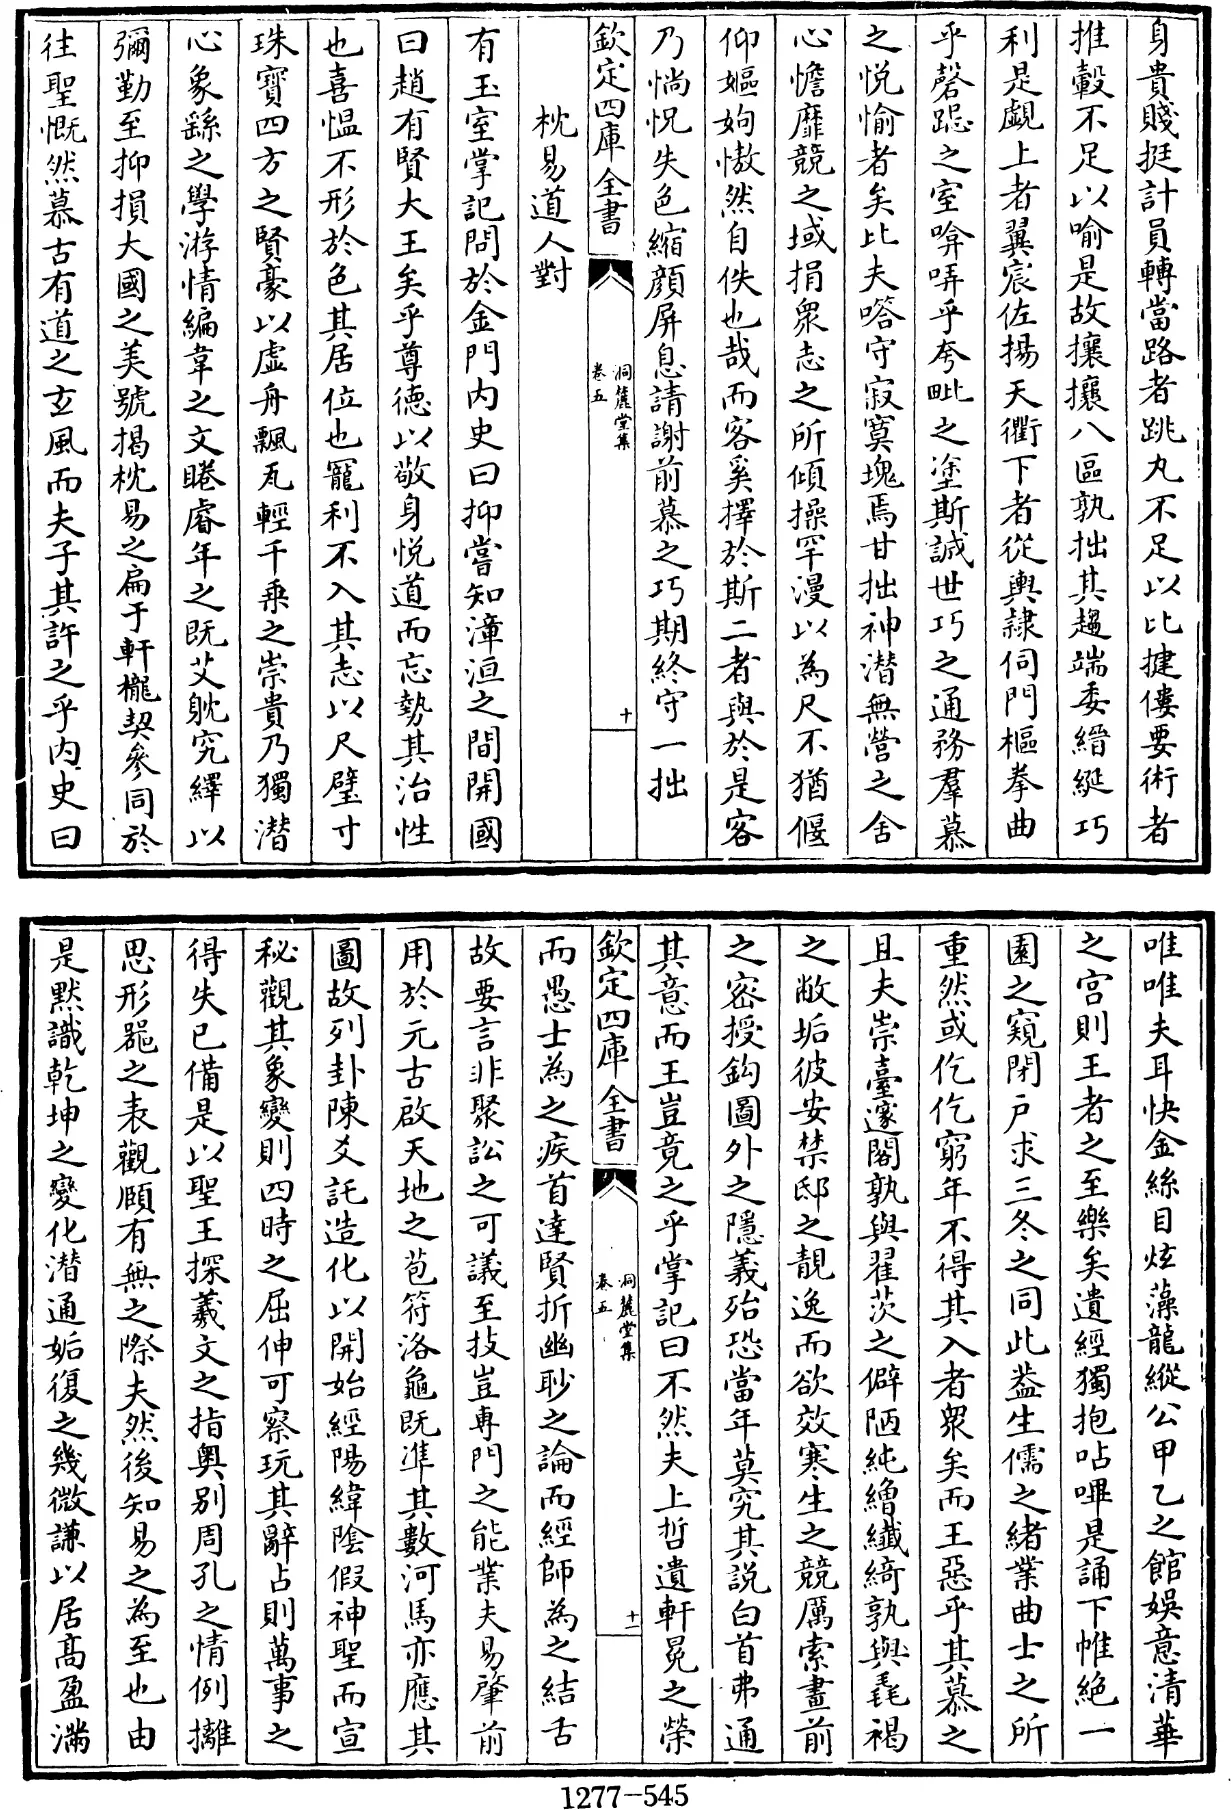 身貴賤挺計員轉當路者跳丸不足以比揵僂要術者
推轂不足以喻是故攘攘八區孰拙其趨端委縉綖巧
利是覷上者翼宸佐揚天衢下者從輿隷伺門樞拳曲
乎磬跽之室喑哢乎夸毗之塗斯誠世巧之通務羣慕
之悦愉者矣比夫嗒守寂寞塊焉甘拙神潜無營之舍
心憺靡競之域捐衆志之所傾操罕漫以為尺不猶偃
仰嫗姁慠然自佚也哉而客奚擇於斯二者與於是客
乃惝怳失色縮顔屏息請謝前慕之巧期終守一拙
欽定四庫全書 洞麓堂集 卷五 十
枕易道人對
有玉室掌記問於金門内史曰抑嘗知漳洹之間開國
曰趙有賢大王矣乎尊德以敬身悦道而忘勢其治性
也喜愠不形於色其居位也寵利不入其志以尺璧寸
珠寶四方之賢豪以虚舟飄瓦輕千乘之崇貴乃獨潜
心象繇之學游情編韋之文睠睿年之既艾躭究繹以
彌勤至抑損大國之美號揭枕易之扁于軒櫳契參同於
往聖慨然慕古有道之玄風而夫子其許之乎内史曰
唯唯夫耳快金絲目炫藻龍縱公甲乙之館娯意清華
之宫則王者之至樂矣遺經獨抱呫嗶是誦下帷絶一
園之窺閉户求三冬之同此葢生儒之緒業曲士之所
重然或仡仡窮年不得其入者衆矣而王惡乎其慕之
且夫崇臺邃閣孰與翟茨之僻陋純繒纎綺孰與毳褐
之敝垢彼安禁邸之靚逸而欲效寒生之競厲索畫前
之密授鈎圖外之隱義殆恐當年莫究其説白首弗通
其意而王豈竟之乎掌記曰不然夫上哲遺軒冕之榮
欽定四庫全書 洞麓堂集 卷五 十一
而愚士為之疾首達賢折幽眇之論而經師為之結舌
故要言非聚訟之可議至技豈專門之能業夫易肇前
用於元古啟天地之苞符洛龜既凖其數河馬亦應其
圖故列卦陳爻託造化以開始經陽緯陰假神聖而宣
秘觀其象變則四時之屈伸可察玩其辭占則萬事之
得失已備是以聖王探羲文之指奥别周孔之情例離
思形噐之表觀頤有無之際夫然後知易之為至也由
是黙識乾坤之變化潜通姤復之幾微謙以居髙盈滿
1277-545